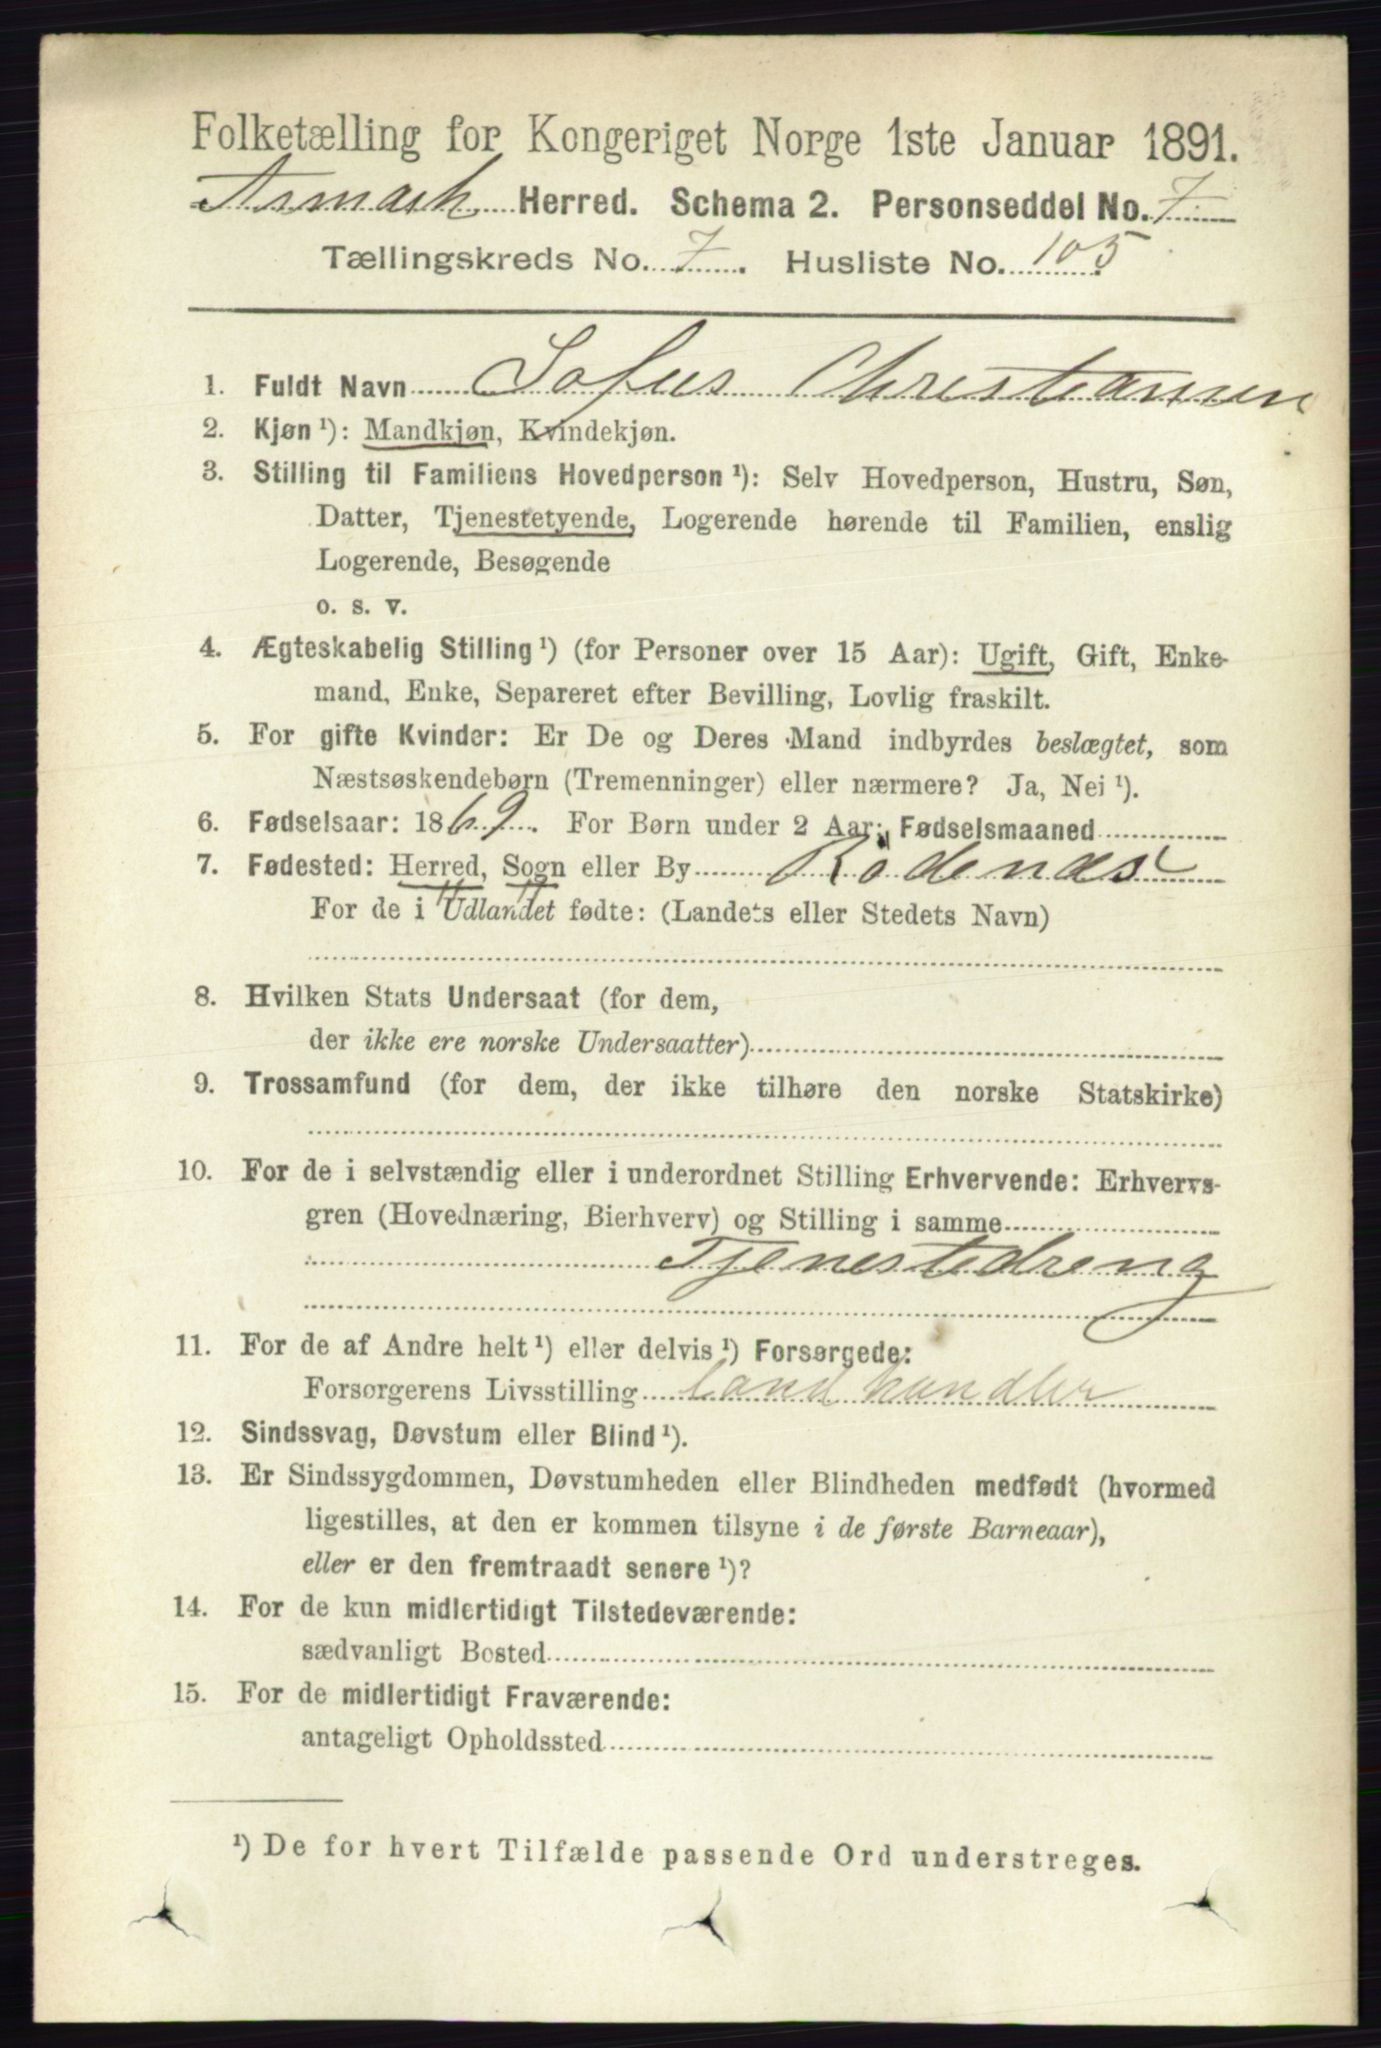 Folketælling for Kongeriget Norge 1ste Januar 1891.
Aremark Herred. Schema 2. Personseddel No. 7
Tællingskreds No. 7. Husliste No. 105
1. Fuldt Navn Sofus Christiansen
2. Kjøn ¹): Mandkjøn, Kvindekjøn.
3. Stilling til Familiens Hovedperson ¹): Selv Hovedperson, Hustru, Søn,
Datter, Tjenestetyende, Logerende hørende til Familien, enslig
Logerende, Besøgende
o. s. v.
4. Ægteskabelig Stilling ¹) (for Personer over 15 Aar): Ugift, Gift, Enke-
mand, Enke, Separeret efter Bevilling, Lovlig fraskilt.
5. For gifte Kvinder: Er De og Deres Mand indbyrdes beslægtet, som
Næstsøskendebørn (Tremenninger) eller nærmere? Ja, Nei ¹).
6. Fødselsaar: 1869. For Børn under 2 Aar: Fødselsmaaned
7. Fødested: Herred, Sogn eller By Rødenæs
For de i Udlandet fødte: (Landets eller Stedets Navn)
8. Hvilken Stats Undersaat (for dem,
der ikke ere norske Undersaatter)
9. Trossamfund (for dem, der ikke tilhøre den norske Statskirke)
10. For de i selvstændig eller i underordnet Stilling Erhvervende: Erhvervs-
gren (Hovednæring, Bierhverv) og Stilling i samme
Tjenestedreng
11. For de af Andre helt ¹) eller delvis ¹) Forsørgede:
Forsørgerens Livsstilling Landhandler
12. Sindssvag, Døvstum eller Blind ¹).
13. Er Sindssygdommen, Døvstumheden eller Blindheden medfødt (hvormed
ligestilles, at den er kommen tilsyne i de første Barneaar),
eller er den fremtraadt senere ¹)?
14. For de kun midlertidigt Tilstedeværende:
sædvanligt Bosted
15. For de midlertidigt Fraværende:
antageligt Opholdssted
¹) De for hvert Tilfælde passende Ord understreges.